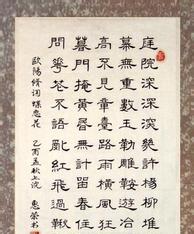 庭院深深深幾許楊柳堆
幕無重數玉勒雕鞍遊冶
高不見章臺路雨橫風狂
暮門掩黃昏無計留春住
問花花不語亂紅飛過鞦
歐陽修词 蝶恋花
乙酉孟秋上浣 惠榮书